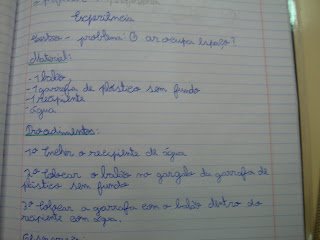 Experiência
Questão - problema: O ar ocupa espaço?
Material:
- 1 balão
- 1 garrafa de plástico sem fundo
- 1 recipiente
água
Procedimentos:
1º Encher o recipiente de água
2º Colocar o balão no gargalo da garrafa de
plástico sem fundo
3º Colocar a garrafa com o balão dentro do
recipiente com água.